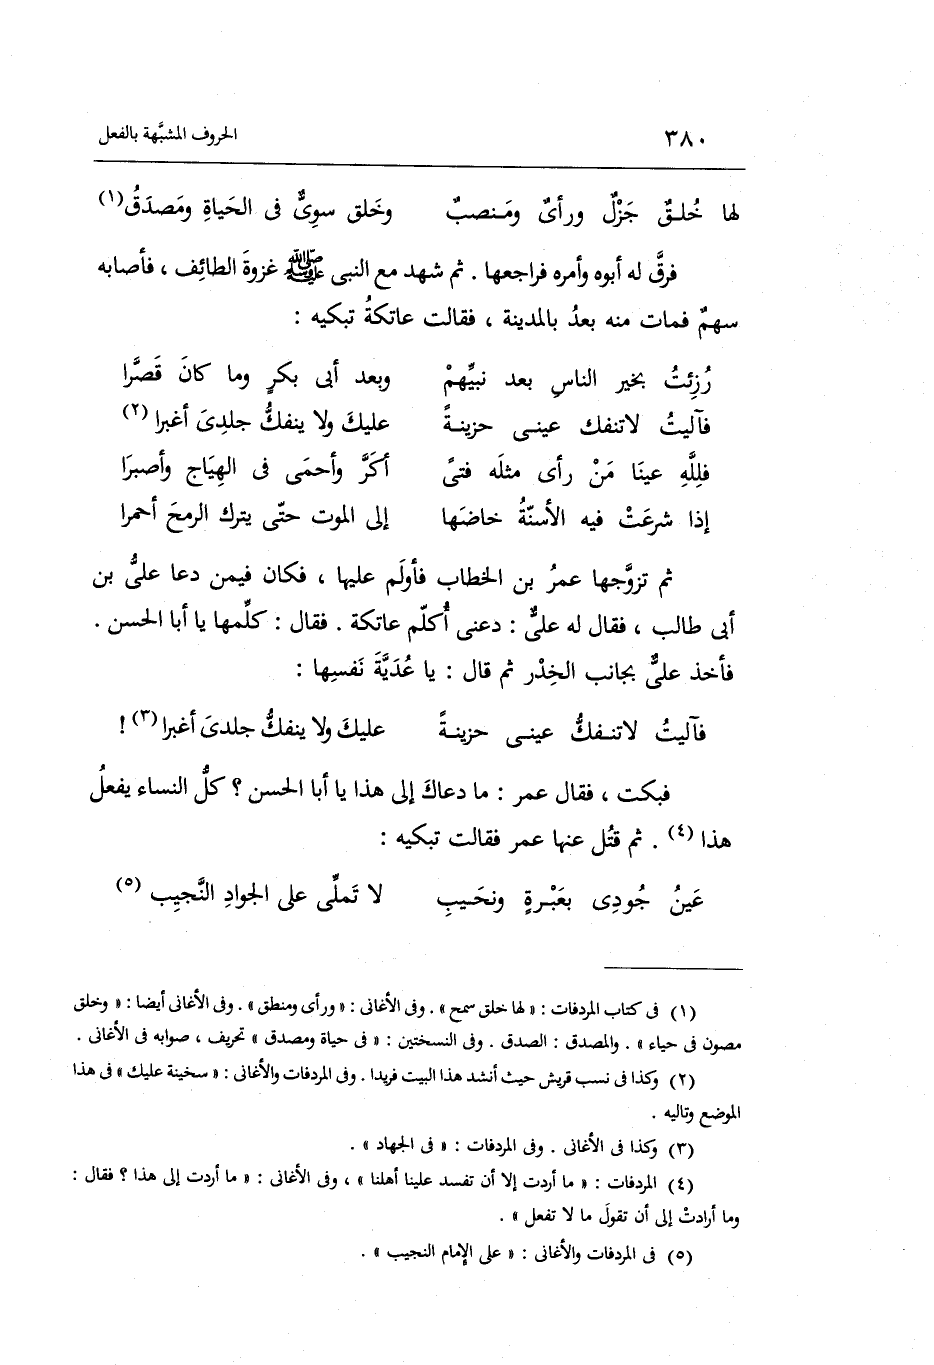 ٣٨٠ الحروف المشبَّهة بالفعل
لها خُلـقٌ جَزْلٌ ورأىٌ ومَـنصبٌ وخَلق سوِىٌّ فى الحَياةِ ومَصدَقُ(١)
فرقَّ له أبوه وأمره فراجعها . ثم شهد مع النبى ﷺ غزوةَ الطائِف ، فأصابه
سهمٌ فمات منه بعدُ بالمدينة ، فقالت عاتكةُ تبكيه :
رُزِئتُ بخير الناسِ بعد نبيِّهمْ وبعد أبى بكرٍ وما كانَ قَصَّرا
فآليتُ لاتنفك عينـى حزينـةً عليكَ ولا ينفكُّ جلدِىَ أغبرا (٢)
فلِلَّهِ عينَا مَنْ رأى مثلَه فتىً أكَرَّ وأحمَى فى الهِيَاج وأصبرَا
إذا شرعَتْ فيه الأسنّةُ خاضَها إلى الموت حتّى يترك الرمحَ أحمرا
ثم تزوَّجها عمرُ بن الخطاب فأولَم عليها ، فكان فيمن دعا علىُّ بن
أبى طالب ، فقال له علىٌّ : دعنى أُكلّم عاتكة . فقال : كلِّمها يا أبا الحسن .
فأخذ علىٌّ بجانب الخِدْر ثم قال : يا عُدَيَّةَ نَفسِها :
فآليتُ لاتنـفكُّ عينـى حزينـةً عليكَ ولا ينفكُّ جلدىَ أغبرا (٣) !
فبكت ، فقال عمر : ما دعاكَ إلى هذا يا أبا الحسن ؟ كلُّ النساء يفعلُ
هذا (٤) . ثم قتُل عنها عمر فقالت تبكيه :
عَينُ جُودِى بعَبْـرةٍ ونحَـيبِ لا تَملِّى على الجوادِ النَّجيِب (٥)
(١) فى كتاب المردفات : « لها خلق سمح » . وفى الأغانى : « ورأى ومنطق » . وفى الأغانى أيضا : « وخلق
مصون فى حياء » . والمصدق : الصدق . وفى النسختين : « فى حياة ومصدق » تحريف ، صوابه فى الأغانى .
(٢) وكذا فى نسب قريش حيث أنشد هذا البيت فريدا . وفى المردفات والأغانى : « سخينة عليك » فى هذا
الموضع وتاليه .
(٣) وكذا فى الأغانى . وفى المردفات : « فى الجهاد » .
(٤) المردفات : « ما أردت إلا أن تفسد علينا أهلنا » ، وفى الأغانى : « ما أردت إلى هذا ؟ فقال :
وما أرادتْ إلى أن تقولَ ما لا تفعل » .
(٥) فى المردفات والأغانى : « على الإمام النجيب » .